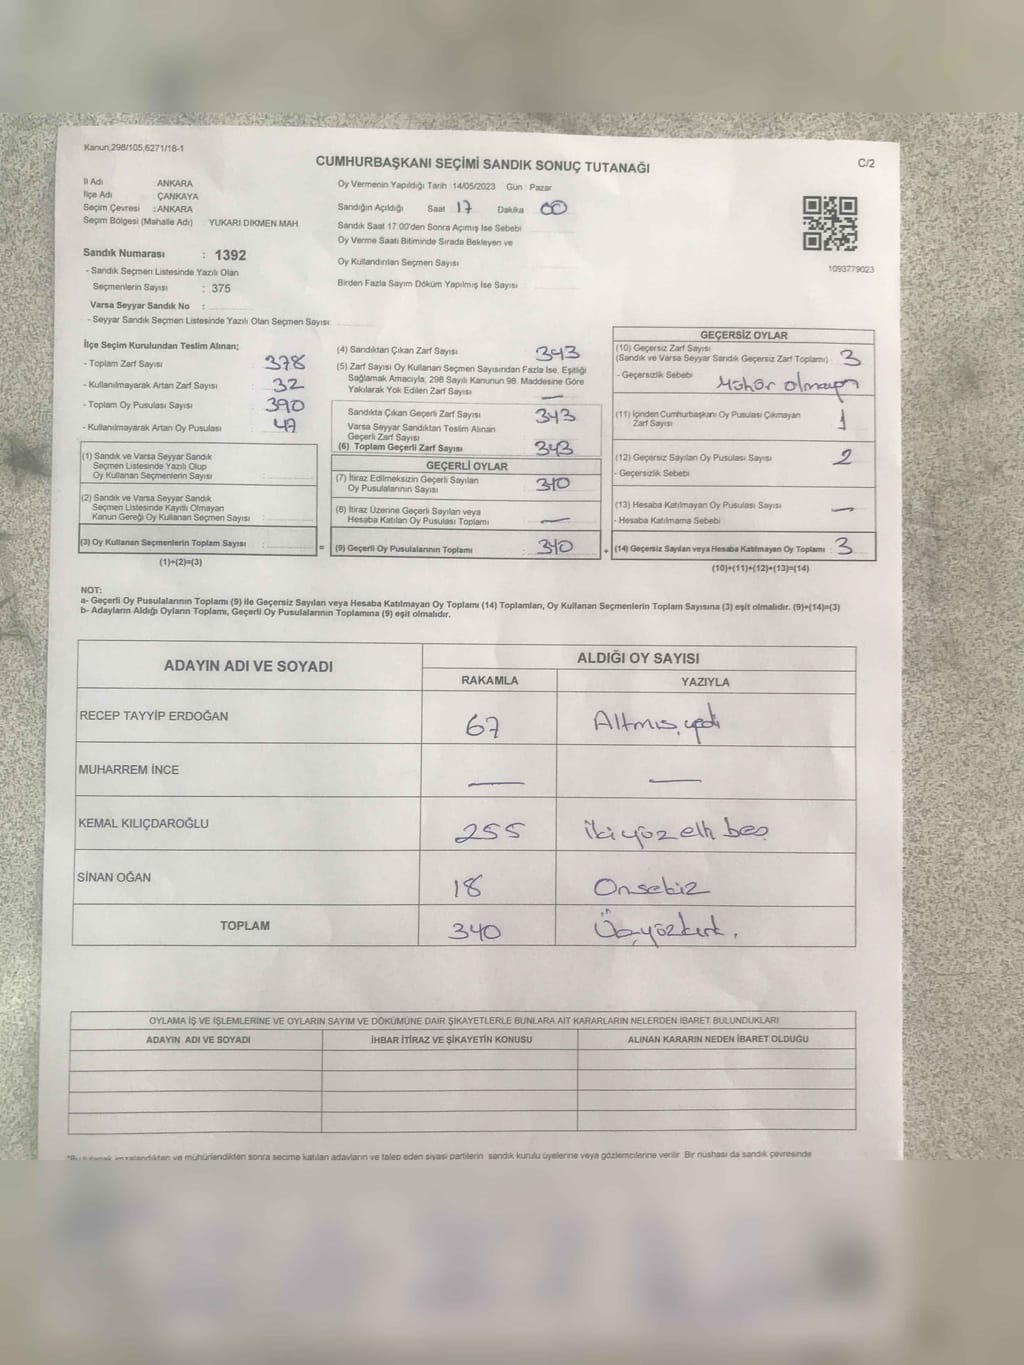 Kanun,298/105,6271/18-1
CUMHURBAŞKANI SEÇİMİ SANDIK SONUÇ TUTANAĞI
C/2
İl Adı ANKARA
İlçe Adı ÇANKAYA
Seçim Çevresi : ANKARA
Seçim Bölgesi (Mahalle Adı) YUKARI DİKMEN MAH.
Sandık Numarası : 1392
- Sandık Seçmen Listesinde Yazılı Olan
Seçmenlerin Sayısı : 375
Varsa Seyyar Sandık No :
- Seyyar Sandık Seçmen Listesinde Yazılı Olan Seçmen Sayısı:
Oy Vermenin Yapıldığı Tarih :14/05/2023 Gün : Pazar
Sandığın Açıldığı Saat 17 Dakika 00
Sandık Saat 17:00'den Sonra Açımış İse Sebebi
Oy Verme Saati Bitiminde Sırada Bekleyen ve
Oy Kullandırılan Seçmen Sayısı
Birden Fazla Sayım Döküm Yapılmış İse Sayısı
1093779023
İlçe Seçim Kurulundan Teslim Alınan;
- Toplam Zarf Sayısı 378
- Kullanılmayarak Artan Zarf Sayısı 32
- Toplam Oy Pusulası Sayısı 390
- Kullanılmayarak Artan Oy Pusulası
(1) Sandık ve Varsa Seyyar Sandık
Seçmen Listesinde Yazılı Olup
Oy Kullanan Seçmenlerin Sayısı
(2) Sandık ve Varsa Seyyar Sandık
Seçmen Listesinde Kayıtlı Olmayan
Kanun Gereği Oy Kullanan Seçmen Sayısı
(3) Oy Kullanan Seçmenlerin Toplam Sayısı :
(1)+(2)=(3)
(4) Sandıktan Çıkan Zarf Sayısı 343
(5) Zarf Sayısı Oy Kullanan Seçmen Sayısından Fazla İse, Eşitliği
Sağlamak Amacıyla; 298 Sayılı Kanunun 98. Maddesine Göre
Yakılarak Yok Edilen Zarf Sayısı —
Sandıkta Çıkan Geçerli Zarf Sayısı 343
Varsa Seyyar Sandıktan Teslim Alınan
Geçerli Zarf Sayısı
(6) Toplam Geçerli Zarf Sayısı 343
GEÇERLİ OYLAR
(7) İtiraz Edilmeksizin Geçerli Sayılan
Oy Pusulalarının Sayısı 340
(8) İtiraz Üzerine Geçerli Sayılan veya
Hesaba Katılan Oy Pusulası Toplamı —
= (9) Geçerli Oy Pusulalarının Toplamı 340
GEÇERSİZ OYLAR
(10) Geçersiz Zarf Sayısı
(Sandık ve Varsa Seyyar Sandık Geçersiz Zarf Toplamı) 3
- Geçersizlik Sebebi Mühür olmayan
(11) İçinden Cumhurbaşkanı Oy Pusulası Çıkmayan
Zarf Sayısı 1
(12) Geçersiz Sayılan Oy Pusulası Sayısı 2
- Geçersizlik Sebebi
(13) Hesaba Katılmayan Oy Pusulası Sayısı —
- Hesaba Katılmama Sebebi
+ (14) Geçersiz Sayılan veya Hesaba Katılmayan Oy Toplamı 3
(10)+(11)+(12)+(13)=(14)
NOT:
a- Geçerli Oy Pusulalarının Toplamı (9) ile Geçersiz Sayılan veya Hesaba Katılmayan Oy Toplamı (14) Toplamları, Oy Kullanan Seçmenlerin Toplam Sayısına (3) eşit olmalıdır. (9)+(14)=(3)
b- Adayların Aldığı Oyların Toplamı, Geçerli Oy Pusulalarının Toplamına (9) eşit olmalıdır.
ADAYIN ADI VE SOYADI
ALDIĞI OY SAYISI
RAKAMLA YAZIYLA
RECEP TAYYİP ERDOĞAN 67 Altmış yedi
MUHARREM İNCE — —
KEMAL KILIÇDAROĞLU 255 İkiyüz elli beş
SİNAN OĞAN 18 Onsekiz
TOPLAM 340 Üçyüzkırk.
OYLAMA İŞ VE İŞLEMLERİNE VE OYLARIN SAYIM VE DÖKÜMÜNE DAİR ŞİKAYETLERLE BUNLARA AİT KARARLARIN NELERDEN İBARET BULUNDUKLARI
ADAYIN ADI VE SOYADI İHBAR İTİRAZ VE ŞİKAYETİN KONUSU ALINAN KARARIN NEDEN İBARET OLDUĞU
*Bu tutanak imzalandıktan ve mühürlendikten sonra seçime katılan adayların ve talep eden siyasi partilerin sandık kurulu üyelerine veya gözlemcilerine verilir. Bir nüshası da sandık çevresinde